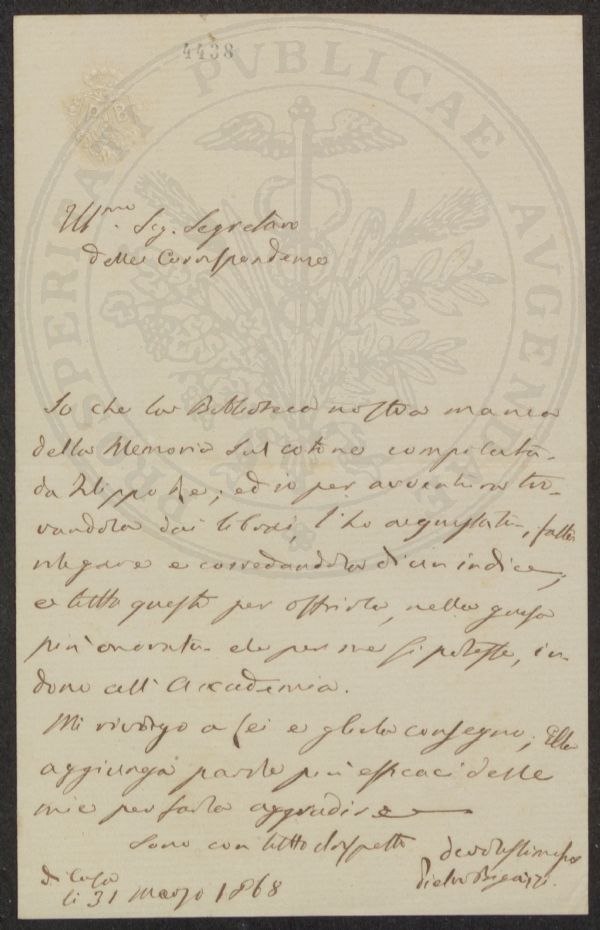 4438
PROSPERITATI PUBLICAE AUGENDAE
Ill.mo Sig. Segretario
delle Corrispondenze
So che la Biblioteca nostra manca
della Memoria sul cotone compilata
da Filippo Re; ed io per avventura tro-
vandola dai librai, l'ho acquistata, fatta
rilegare e corredandola di un indice;
e tutto questo per offrirla, nella guisa
più onorata che per me si potesse, in
dono all'Accademia.
Mi rivolgo a Lei e gliela consegno; Ella
aggiunga parole più efficaci delle
mie per farla aggradire
Sono con tutto rispetto devotissimo
di Casa Pietro Bigazzi.
li 31 Marzo 1868